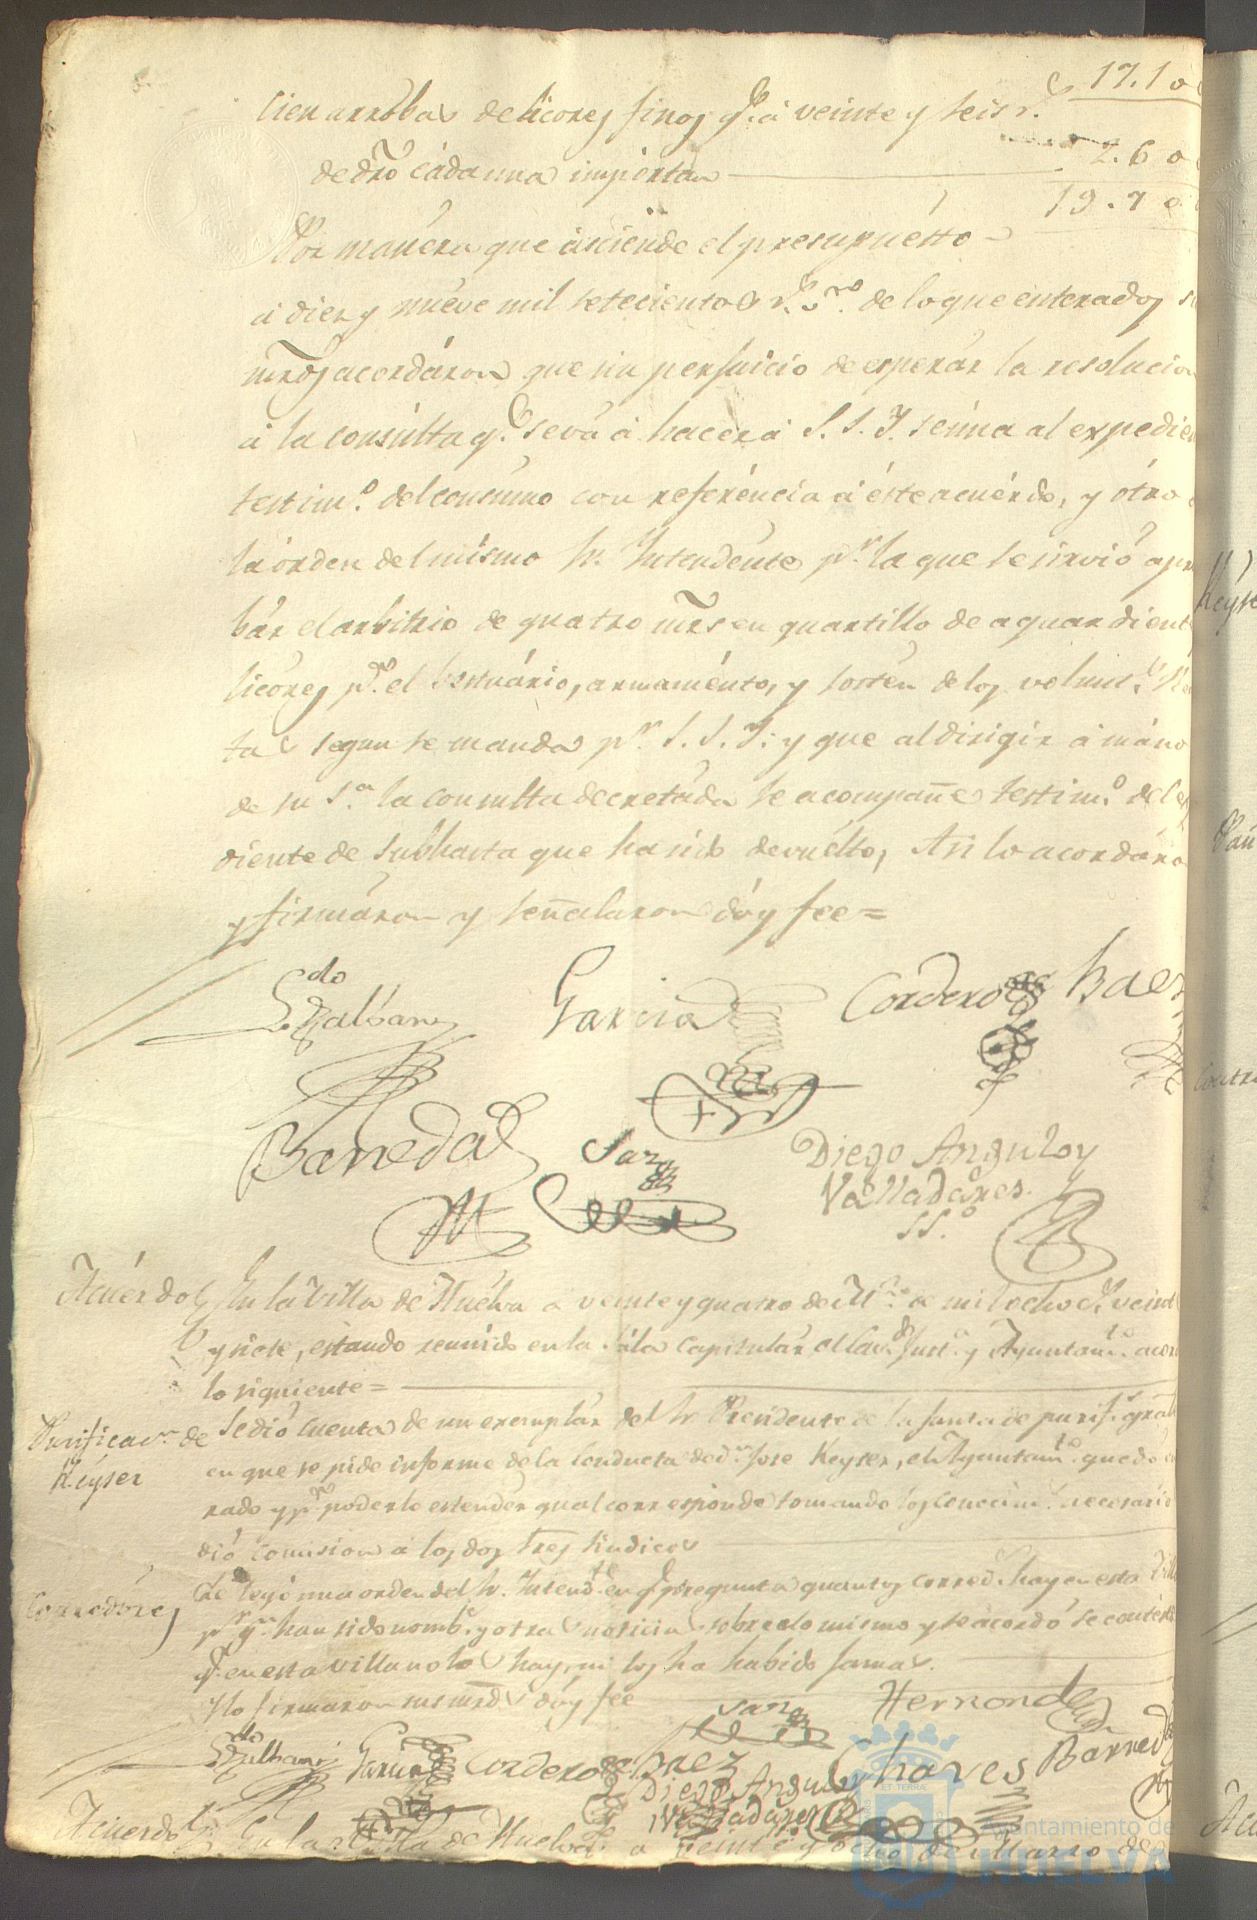 17.100
Cien arrobas de licores finos q.e á veinte y seis r.s
2.600
de dro cada una importan
19.700
Por manéra que asciende el presupuésto
á diez y nuéve mil setecientos r.s v.on de lo que enterados sus
mrds acordáron que sin perjuicio de esperár la resolucion
á la consúlta q.e se vá á hacer á S. S. Y. se úna al expedien
testim.o del consúmo con referéncia á éste acuérdo, y ótro
la órden del mismo Sr. Intendénte p.r la que se sirvió apro
bár el arbitrio de quatro mrs en quartillo de aguardiente
licóres p.a el Vestuário, armaménto, y sostén de los volunt.s
tas segun se manda p.r S. S. Y. y que al dirigir á máno
de su S.a la consulta decretáda se acompañe testim.o del
diente de subhasta que ha sido devuélto, Asi lo acordáro
y firmáron y señalaron dóy fee=
L.do Galban
Garcia
Cordero
Baez
Barreda
Saz
Diego Angulo y
Valladáres.
SS.o
Acuérdo
En la Villa de Huélva á veinte y quatro de M.zo de mil ocho c.s veinte
y siete, estando reunido en la Sála Capitulár el Cav.do Just.a y Ayuntam.to acor
lo siguiente=
Purificac.n de
Keyser
Se dió cuenta de un exemplár del Sr. Presidente de la Junta de purif.s
en que se pide informe de la conducta de d.n Jose Keyser, el Ayuntam.to quedó
rado y p.a poderlo estendér qual corresponde tomando los conocim.tos necesario
dió comision á los dos Sres Sindicos
Corredóres
Se leyó una orden del Sr. Intend.te en q.e pregunta quantos corred.s hay en esta Villa
p.r q.n han sido nomb.s y otras noticias sobre lo mismo y se acordó se contéste
q.e en esta villa no los hay, ni los ha habido jamas.
Y lo firmaron sus mrds dóy fee
Saz
Hernandez
L.do Galban
Garcia
Cordero
Baez
Chaves
Barreda
Diego Angulo y
Valladáres
Acuerdo
En la Villa de Huelva á veinte y ocho de Marzo de
Keyse
Ayuntamiento de
HUELVA